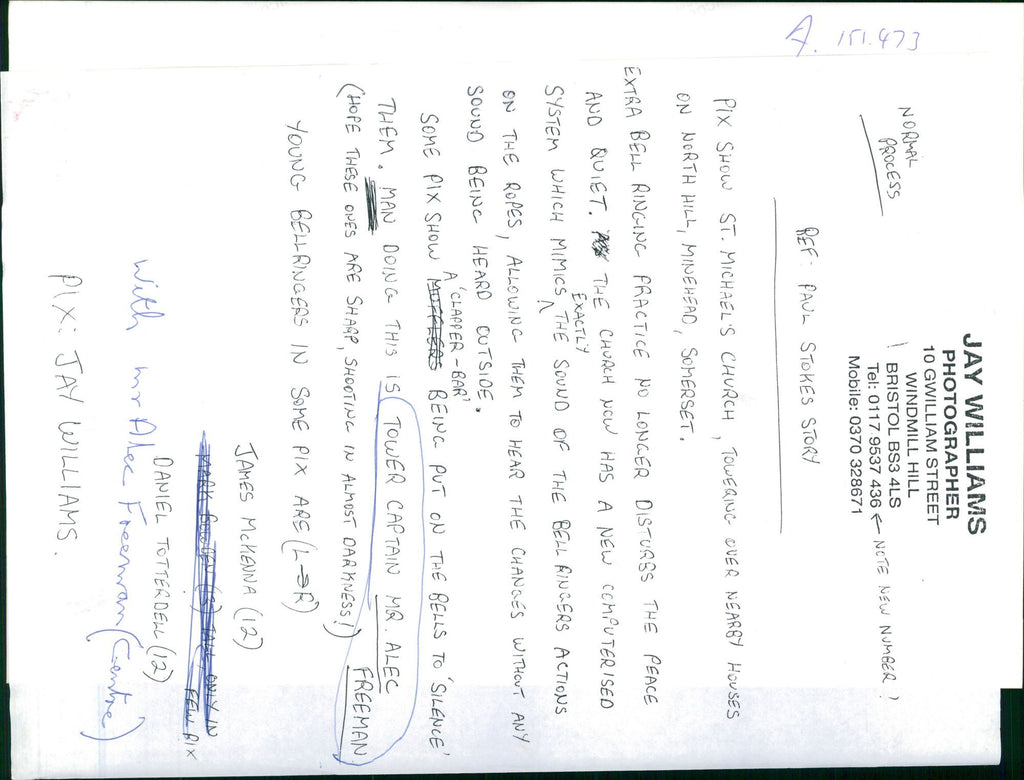 A. 151.473
JAY WILLIAMS
PHOTOGRAPHER
10 GWILLIAM STREET
WINDMILL HILL
BRISTOL BS3 4LS
Tel: 0117 9537 436 ← NOTE NEW NUMBER!
Mobile: 0370 328671
NORMAL
PROCESS
REF: PAUL STOKES STORY
PIX SHOW ST. MICHAEL'S CHURCH, TOWERING OVER NEARBY HOUSES
ON NORTH HILL, MINEHEAD, SOMERSET.
EXTRA BELL RINGING PRACTICE NO LONGER DISTURBS THE PEACE
AND QUIET. THE CHURCH NOW HAS A NEW COMPUTERISED
EXACTLY
SYSTEM WHICH MIMICS THE SOUND OF THE BELL RINGERS ACTIONS
ON THE ROPES, ALLOWING THEM TO HEAR THE CHANGES WITHOUT ANY
SOUND BEING HEARD OUTSIDE.
A 'CLAPPER-BAR'
SOME PIX SHOW MUFFLERS BEING PUT ON THE BELLS TO 'SILENCE'
THEM. MAN DOING THIS IS TOWER CAPTAIN MR. ALEC
FREEMAN.
(HOPE THESE ONES ARE SHARP, SHOOTING IN ALMOST DARKNESS!)
YOUNG BELLRINGERS IN SOME PIX ARE (L→R)
JAMES McKENNA (12)
MARK BOWDEN (13) TALL, ONLY IN
FEW PIX
DANIEL TOTTERDELL (12)
With Mr Alec Freeman (Centre)
PIX: JAY WILLIAMS.